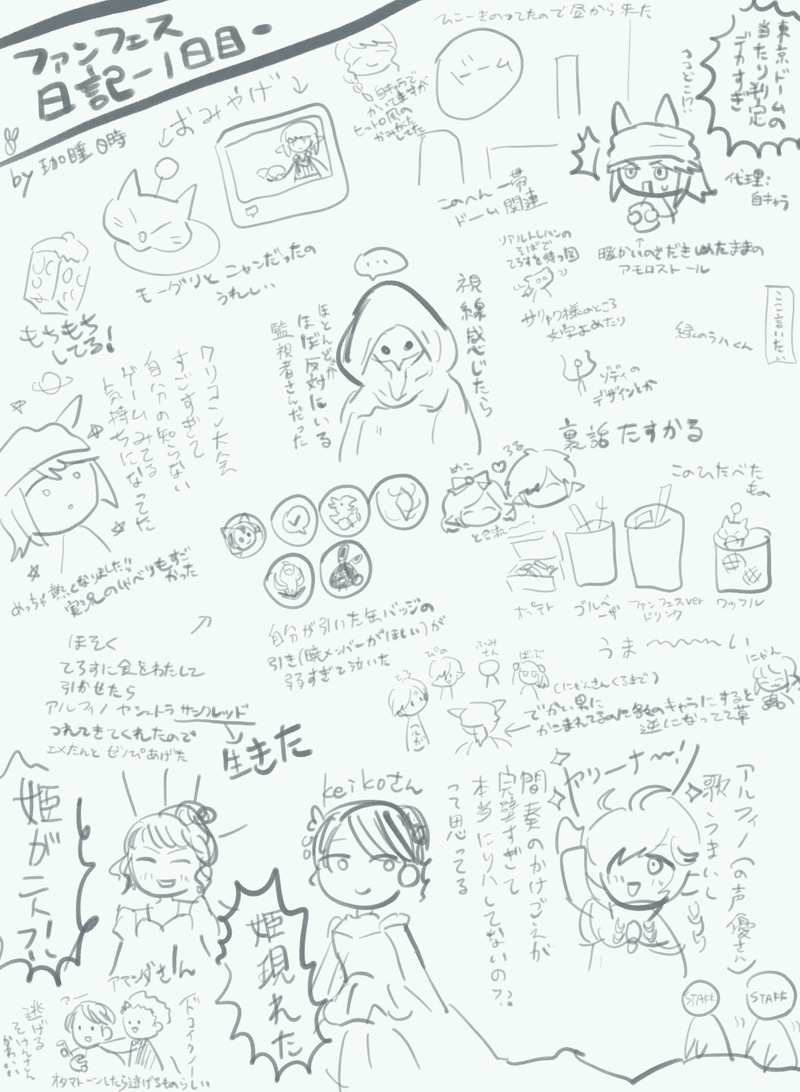 ファンフェス
日記-1日目-
by 珈瞳 0時
おみやげ
ひこーきのってたので昼から来た
ドーム
このへん一帯
ドーム関連
東京ドームの
当たり判定
デカすぎ
代理:
自キャラ
暖かいのでだきしめたままの
アモロストール
モーグリと ニャンだったの
うれしい
もちもち
してる!
視線感じたら
ほとんどが
ほぼ反対にいる
監視者さんだった
ワリコン大会
すごすぎて
自分の知らない
ゲームみてる
気持ちになってた
めっちゃ熱くなりました!!
実況のしゃべりもすご
かった
リアルトレバンの
そばで
てろすを待つ図
文字よめたり
ゾディの
デザインとか
緑のラハくん
ここ言いたい
裏話たすかる
めこ
るる
と合流〜!
このひたべた
もの
ポテト
ゴルベ
ーザ
ファンフェスver
ドリンク
ワッフル
うま〜〜〜い
自分が引いた缶バッジの
引き(暁メンバーがほしい)が
弱すぎて泣いた
ほそく
てろすに金をわたして
引かせたら
アルフィノ ヤシュトラ サンクレッド
つれてきてくれたので
生きた
(にゃんさんくるまで)
でかい男に
かこまれてるので
逆になってて草
姫が二人!?
アマンダさん
keikoさん
姫現れた
間奏のかけごえが
完璧すぎて
本当にリハしてないの?!
って思ってる
ヤリーナ〜!
アルフィノ(の声優さん)
歌うまいし
STAFF
STAFF
ドコイクノー
逃げる
そけんさん
かわいい
オタマトーンしたら逃げるものらしい